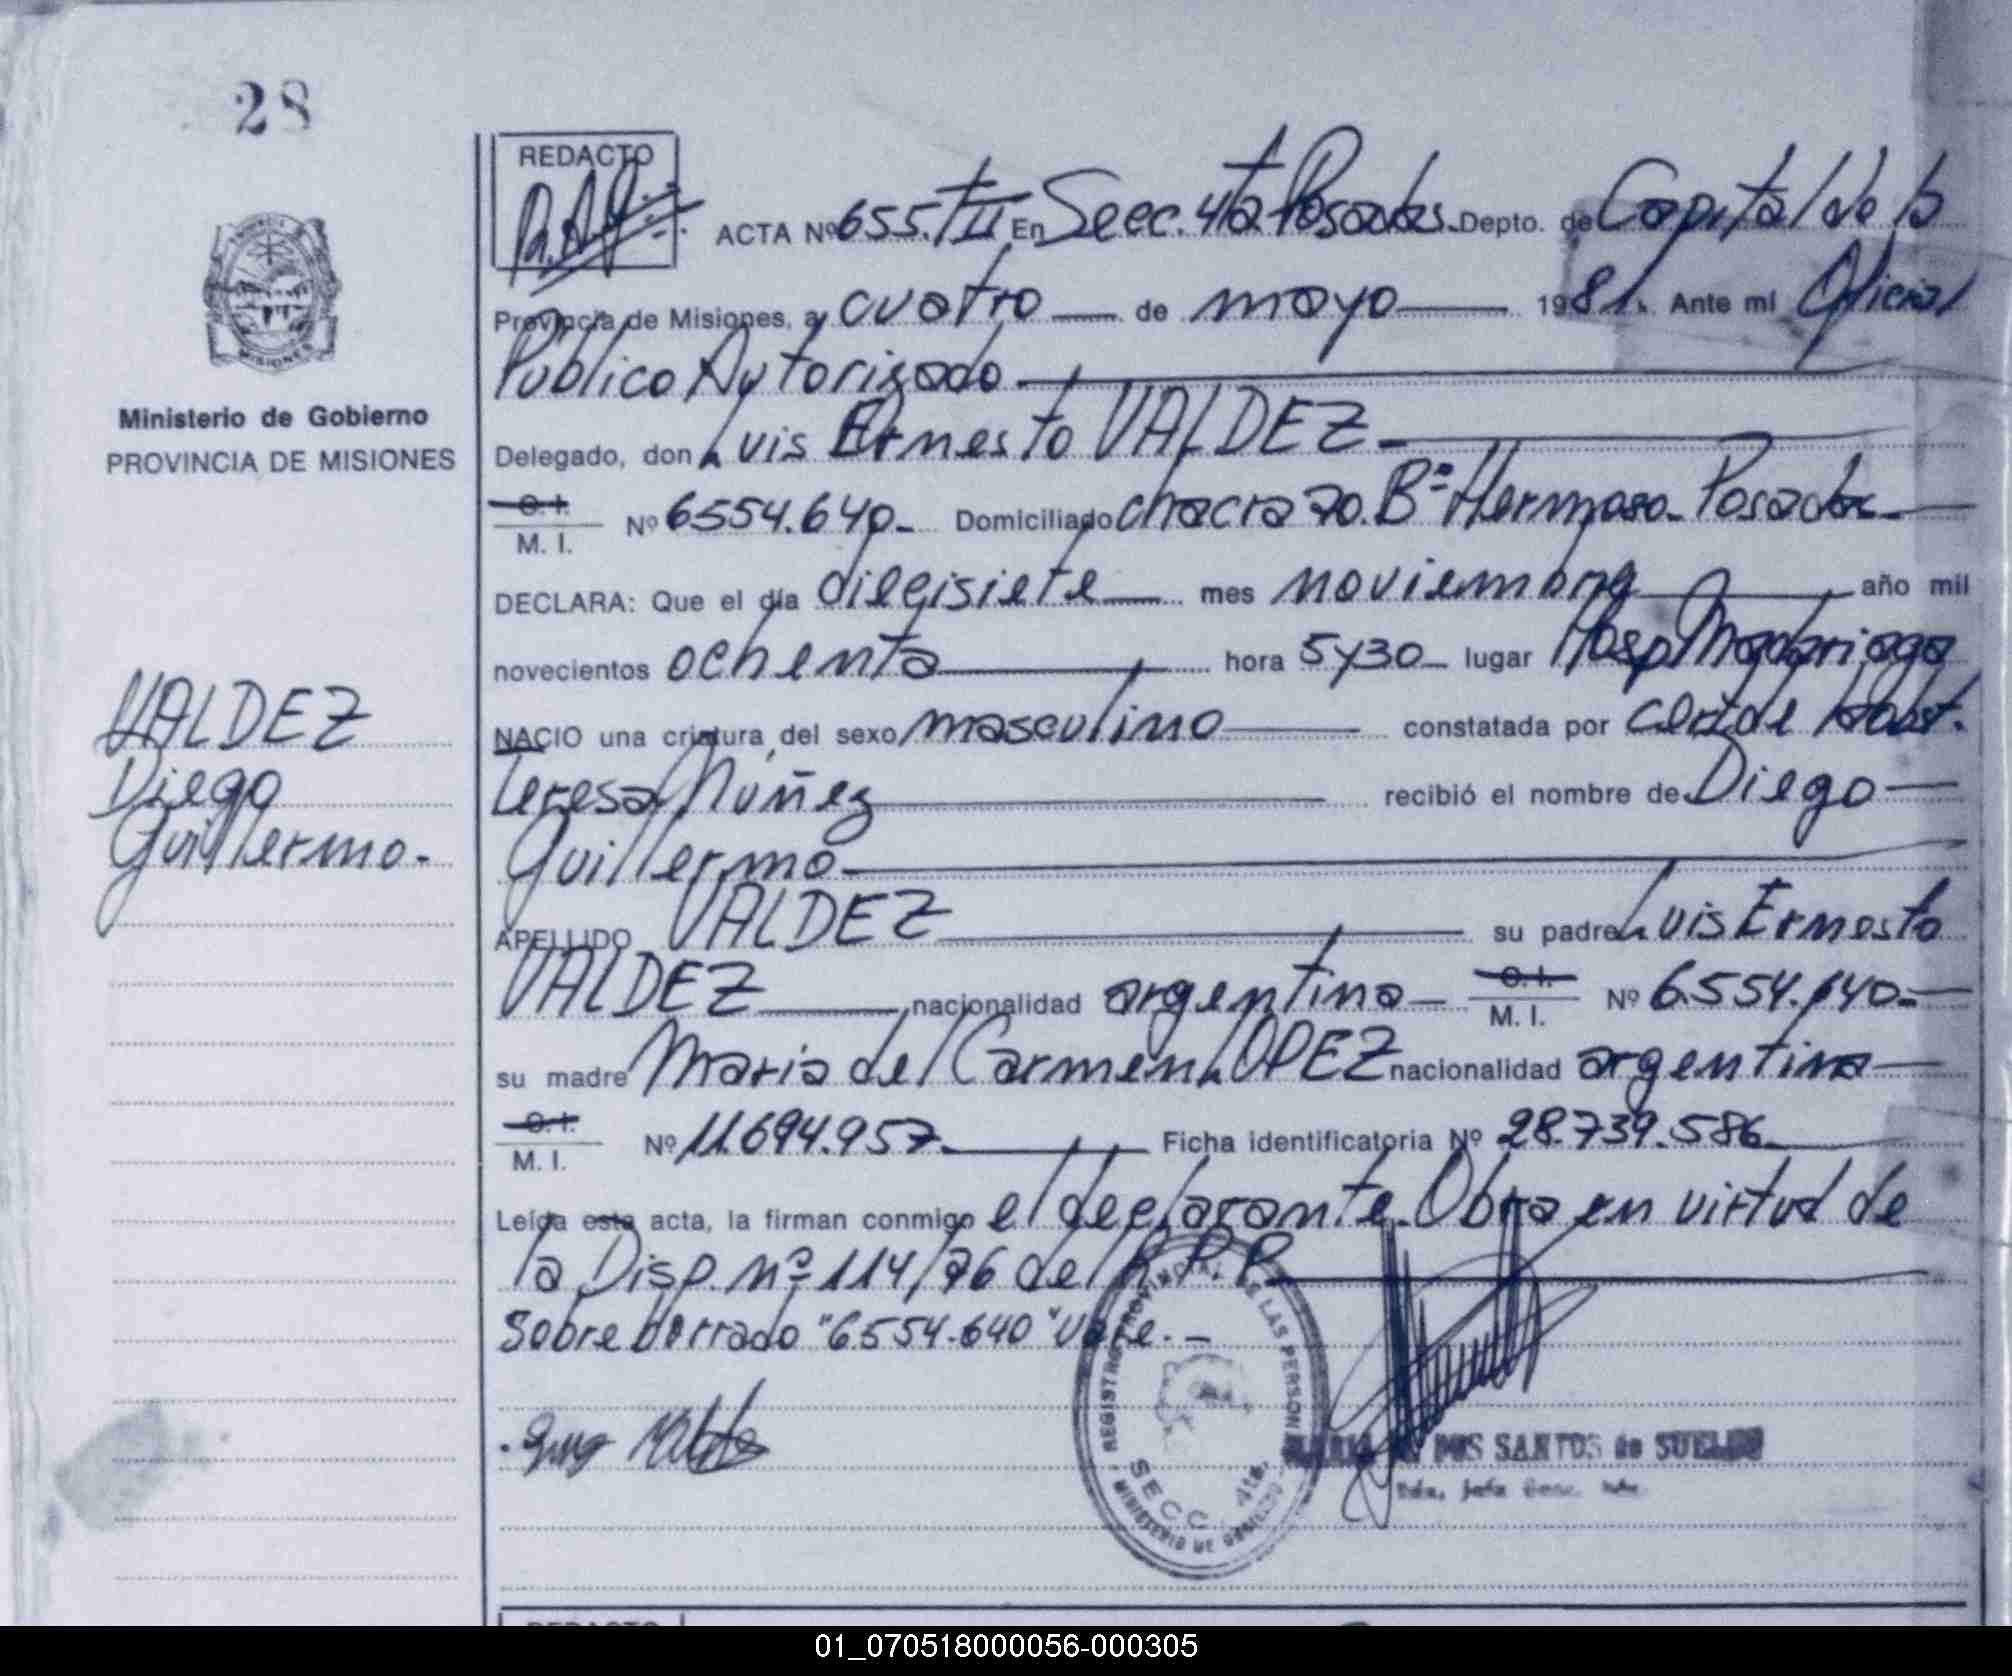 28
REDACTO
ACTA Nº 655. T II En Secc. 4ta Posadas. Depto. de Capital de la
Provincia de Misiones, a cuatro de mayo 1981. Ante mi Oficial
Público Autorizado
Ministerio de Gobierno
PROVINCIA DE MISIONES
Delegado, don Luis Ernesto VALDEZ
C. I.
M. I. Nº 6554.640 Domiciliado chacra 70. Bº Hermoso. Posadas
DECLARA: Que el día diecisiete mes noviembre año mil
novecientos ochenta hora 5y30 lugar Hosp Madariaga
VALDEZ
Diego
Guillermo.
NACIO una criatura del sexo masculino constatada por Cert de Obst.
Teresa Núñez recibió el nombre de Diego
Guillermo
APELLIDO VALDEZ su padre Luis Ernesto
VALDEZ nacionalidad argentina C. I.
M. I. Nº 6.554.640
su madre Maria del Carmen LOPEZ nacionalidad argentina
C. I.
M. I. Nº 11.694.957 Ficha identificatoria Nº 28.739.586
Leída esta acta, la firman conmigo el declarante. Obra en virtud de
la Disp. nº 114/76 del R.P.P.
Sobre borrado "6.554.640" Vale.
REGISTRO PROVINCIAL DE LAS PERSONAS
SECC 4ta.
MINISTERIO DE GOBIERNO
DOS SANTOS de SUELDO
REDACTO
01_070518000056-000305